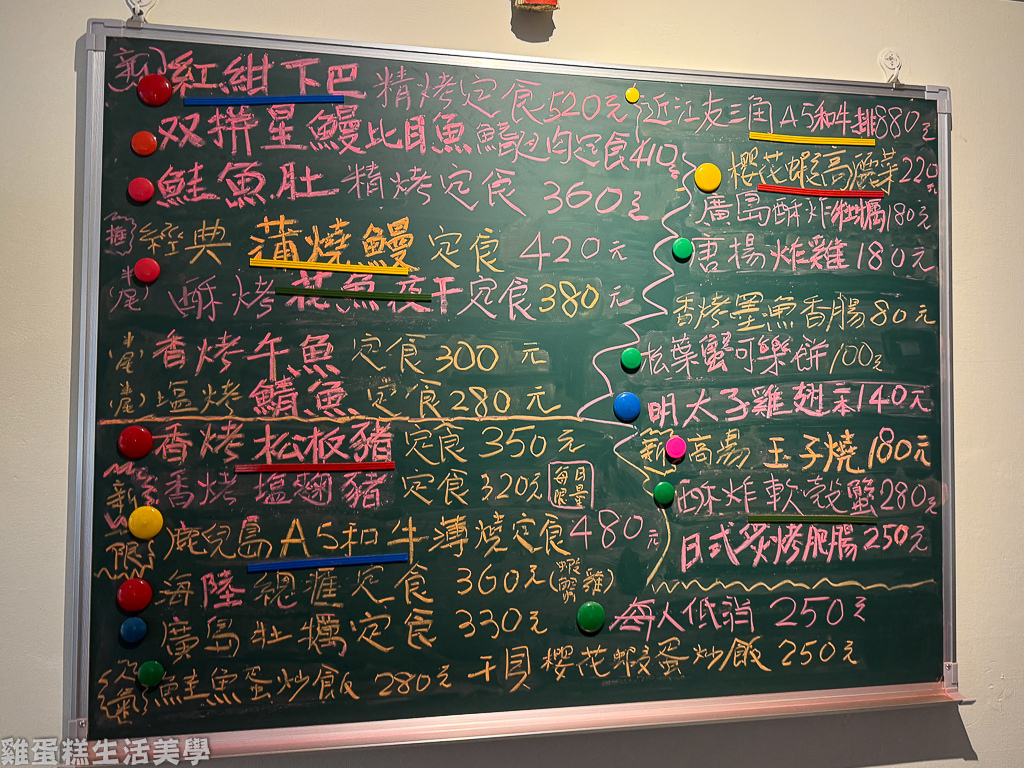 新 紅紺下巴 精烤定食520元
双拼星鰻比目魚鰭 定食410元
鮭魚肚 精烤定食 360元
推 經典 蒲燒鰻 定食 420元
半尾 酥烤花魚夜干定食380元
半尾 香烤午魚 定食300元
半尾 塩烤鯖魚 定食280元
香烤松板豬 定食350元
新 香烤塩麴豬 定食320元 每日限量
限 鹿兒島A5和牛薄燒定食480元
海陸總匯定食 360元(蝦蟹雞)
廣島牡蠣定食 330元
人氣 鮭魚蛋炒飯 280元 干貝櫻花蝦蛋炒飯 250元
近江友三角A5和牛排880元
櫻花蝦高麗菜220元
廣島酥炸牡蠣180元
唐揚炸雞180元
香烤墨魚香腸80元
松葉蟹可樂餅100元
明太子雞翅二本140元
新 高湯玉子燒180元
酥炸軟殼蟹280元
日式炙烤肥腸250元
每人低消 250元
雞蛋糕生活美學